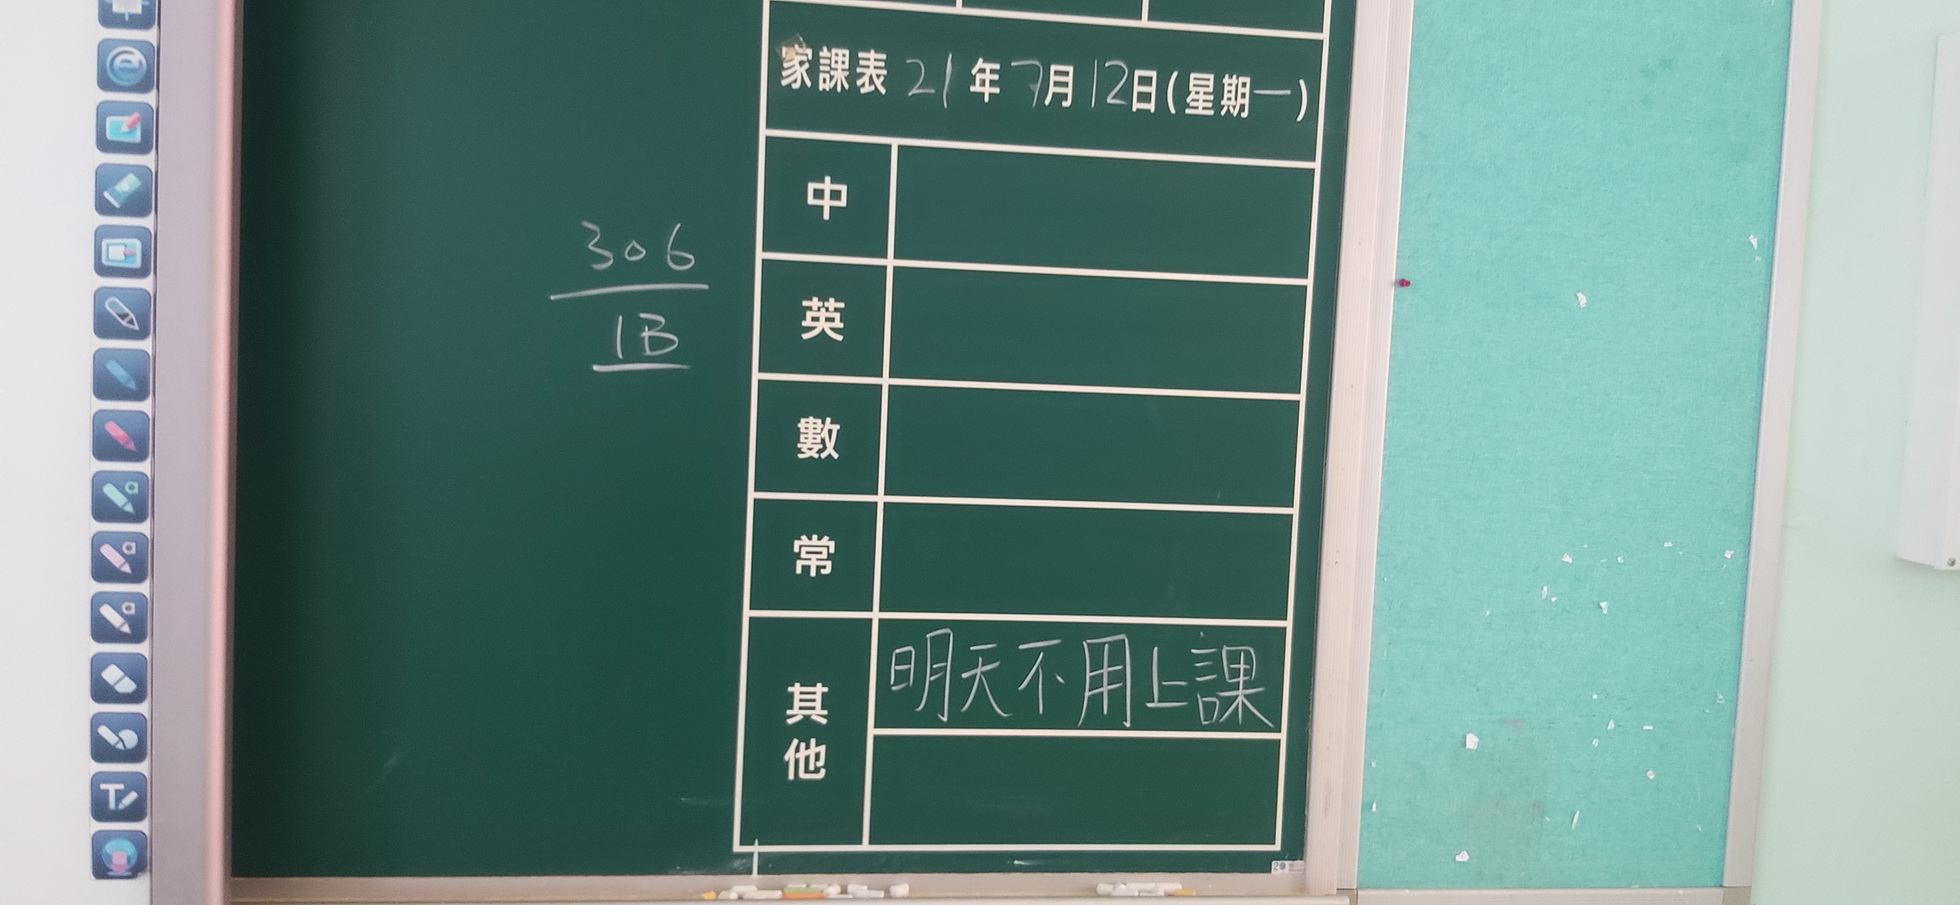 家課表 21年7月12日(星期一)
中
英
數
常
其他
明天不用上課
306
1B